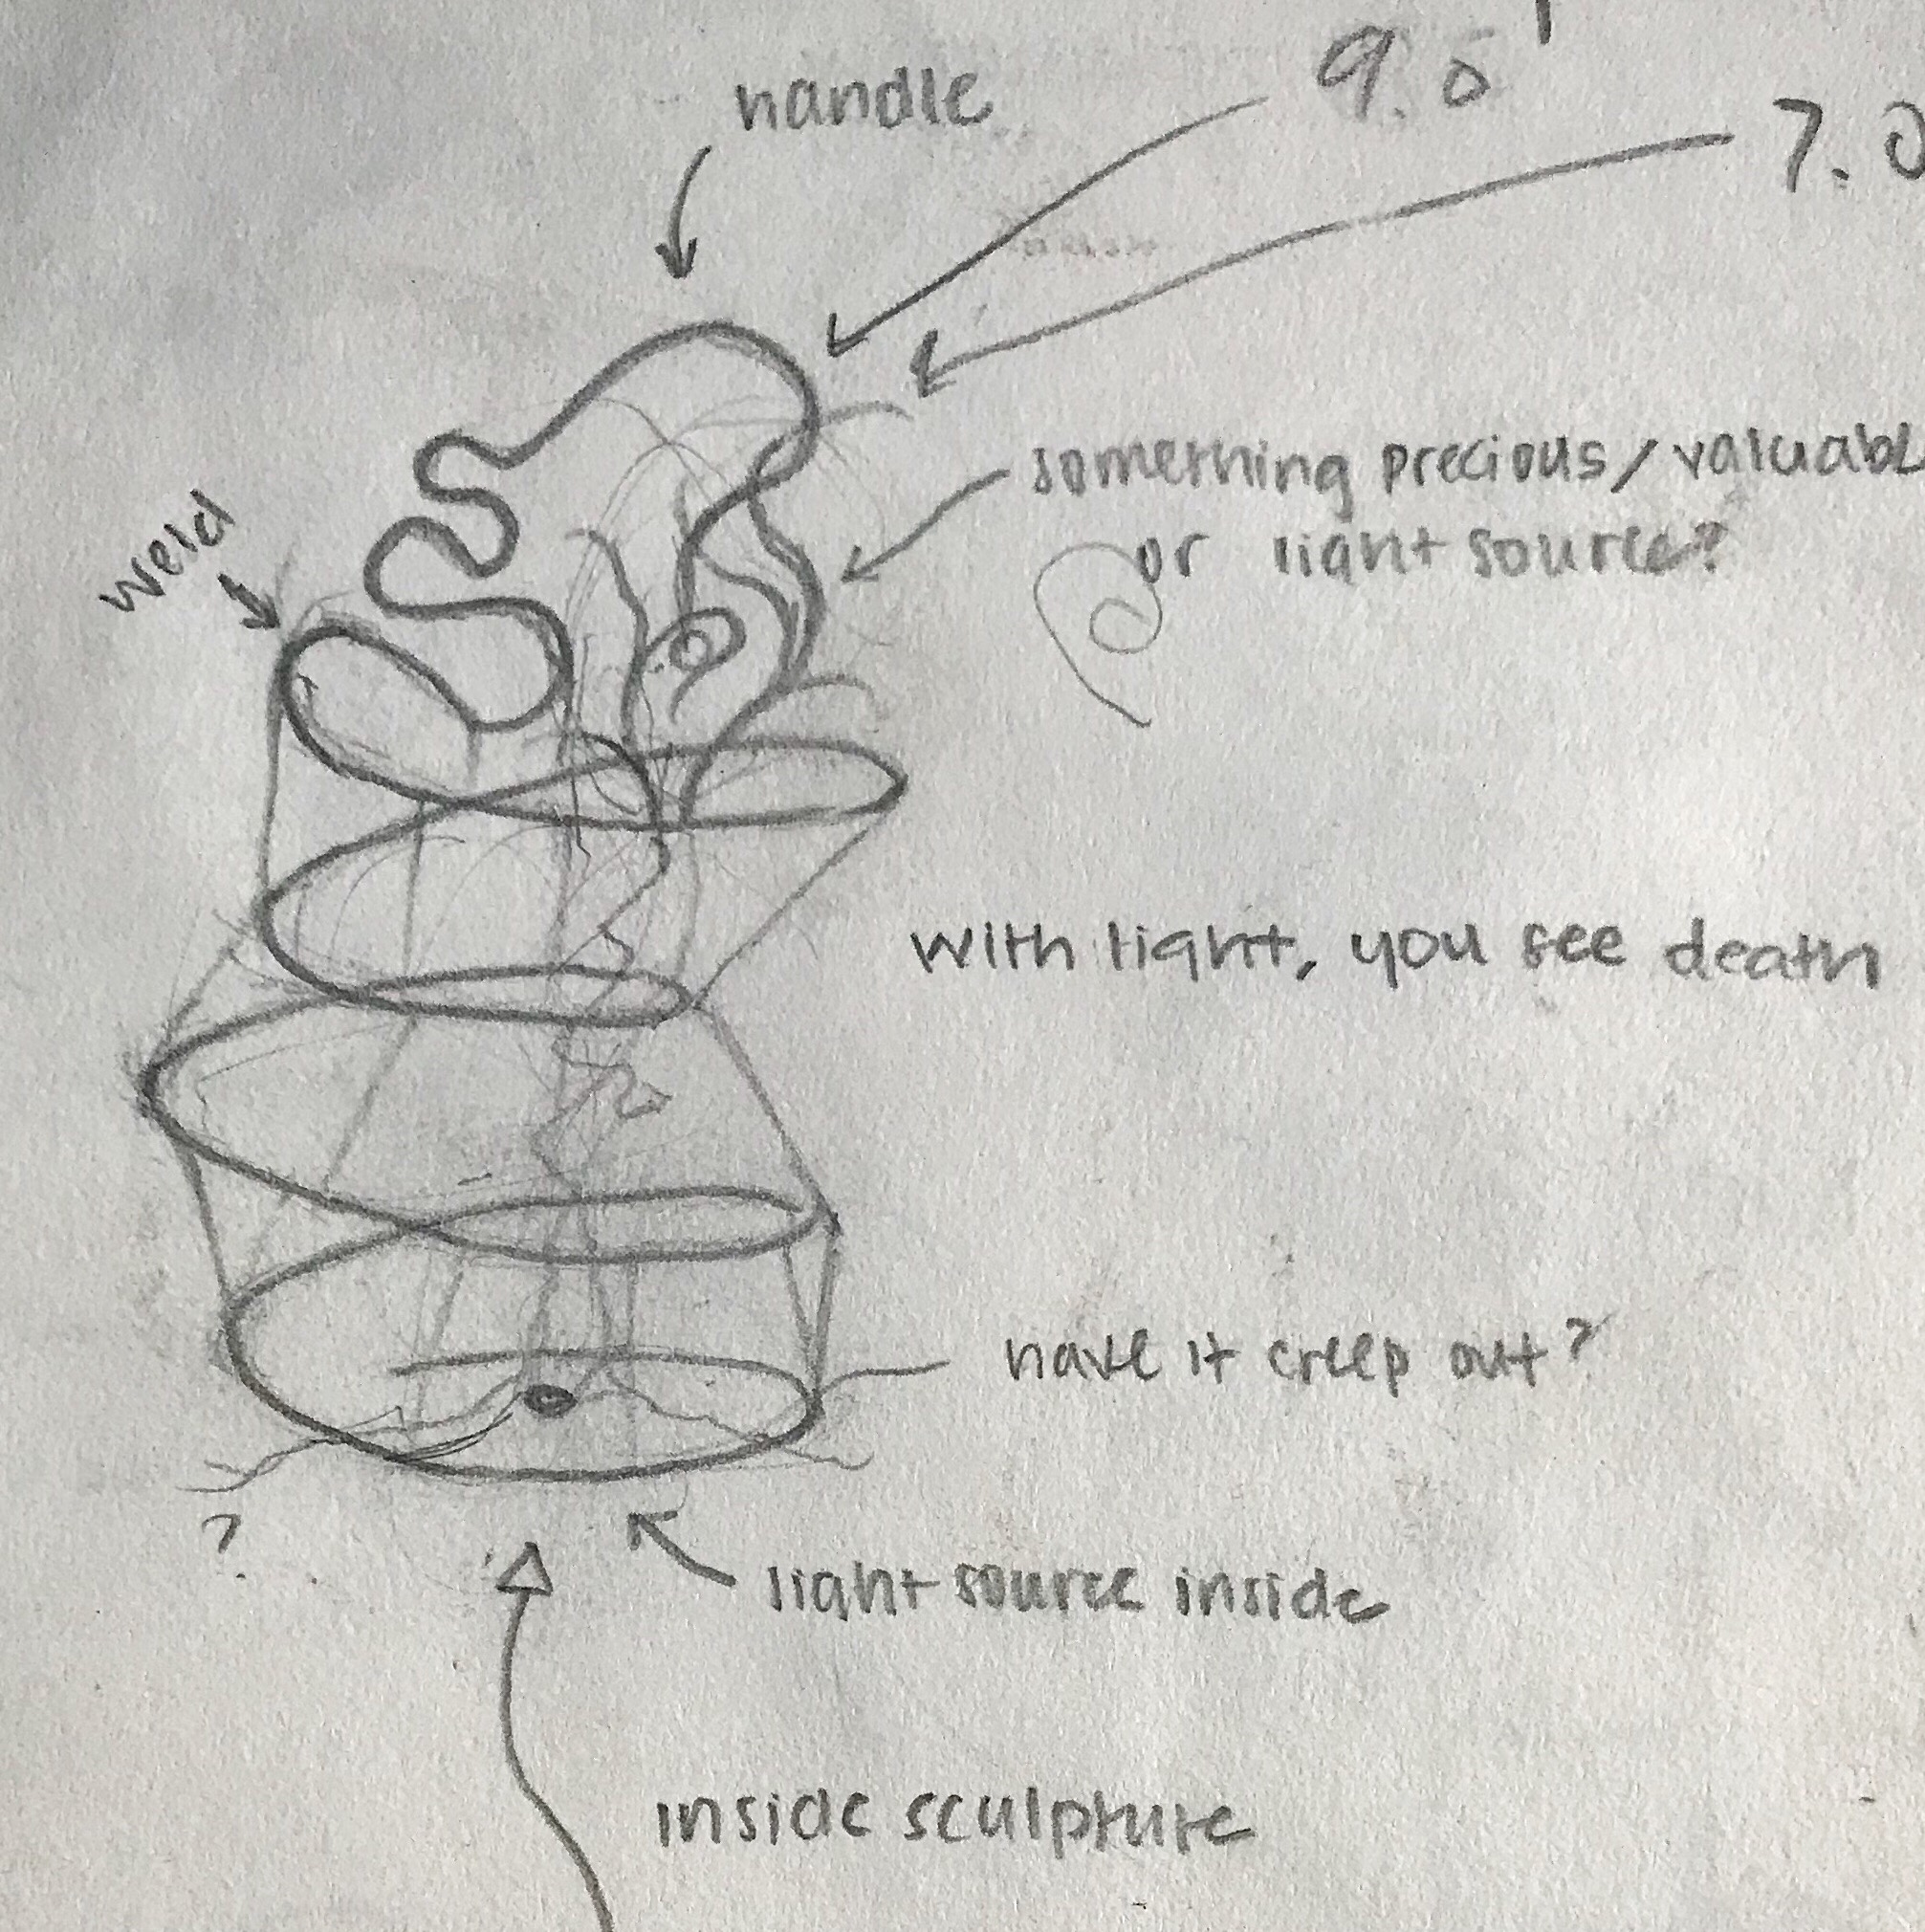 handle
9.5'
7.0
something precious/valuabl
or light source?
weld
with light, you see death
have it creep out?
?
light source inside
inside sculpture